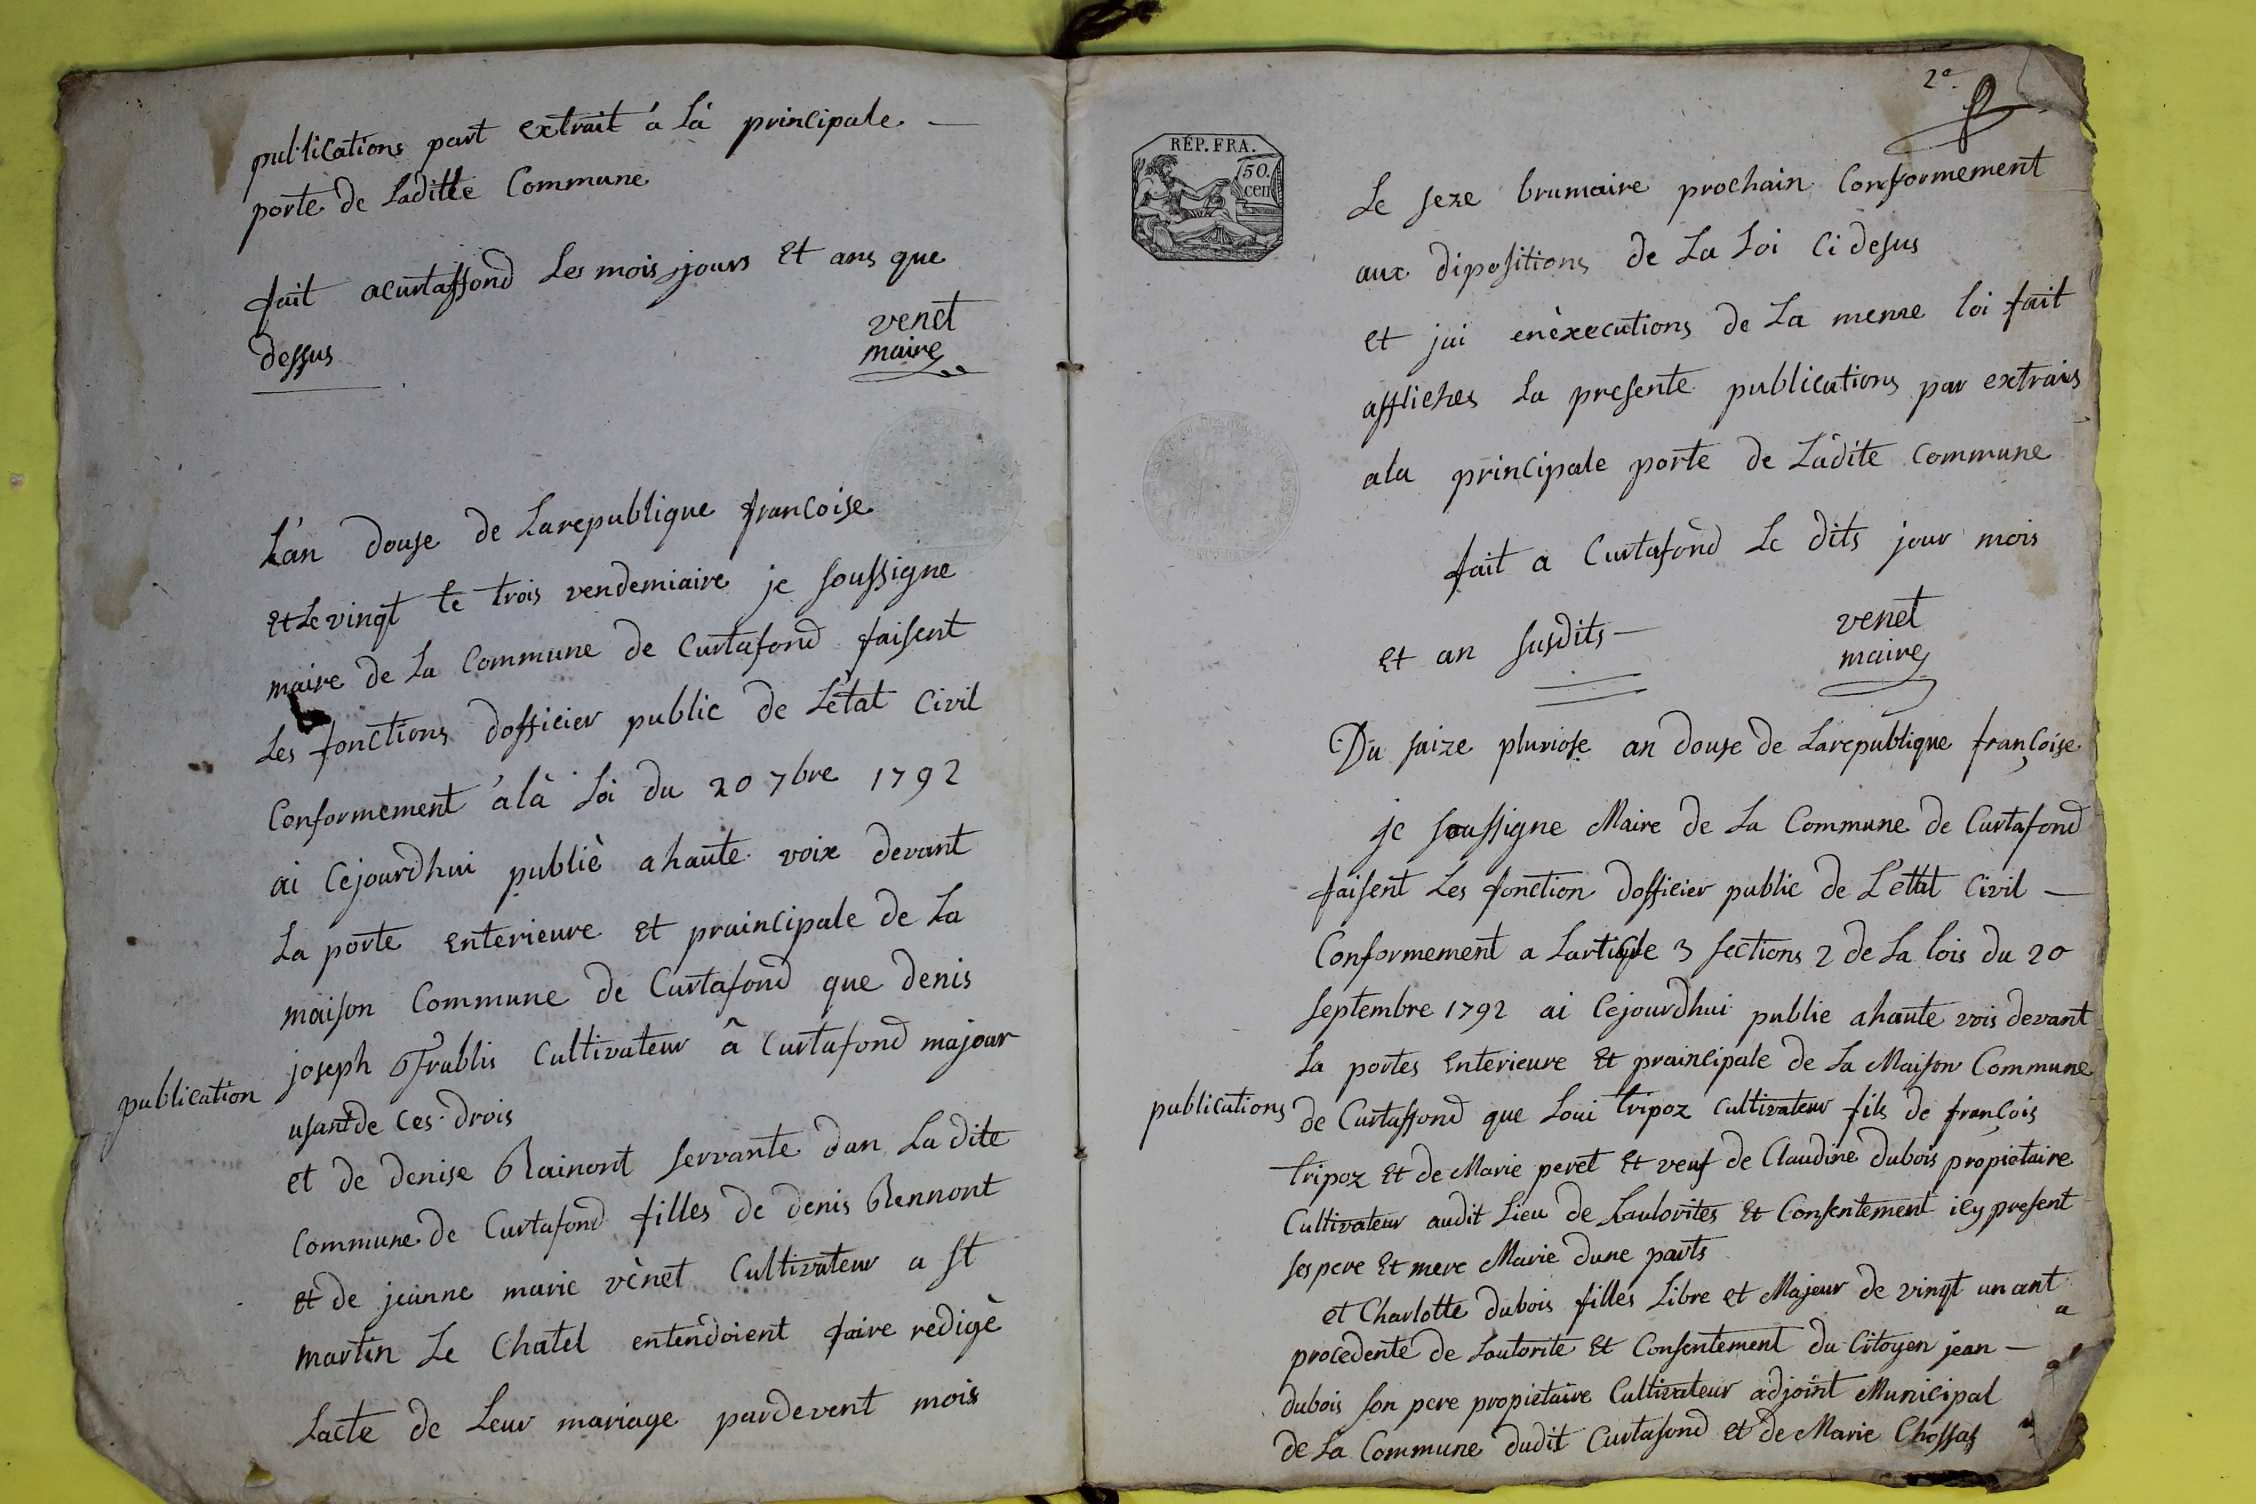 publications part extrait á là principale —
porte de laditte Commune
fait acurtaffond les mois jours et ans que
dessus
venet
maire
L'an douse de Larepublique francoise
et le vingt te trois vendemiaire je soussigne
maire de La Commune de Curtafond faisent
Les fonctions dofficier public de L'etat Civil
Conformement á là Loi du 20 7bre 1792
ai Cejourdhui publiè ahaute voix devant
La porte enterieure et praincipale de La
maison Commune de Curtafond que denis
joseph Frablis Cultivateur â Curtafond majour
publication
usant de ces drois
et de denise Rainont servante dan La dite
Commune de Curtafond filles de denis Rennont
et de jeanne marie vènet Cultivateur a st
martin Le Chatel entendoient faire redigè
Lacte de Leur mariage pardevent mois
2e
RÉP. FRA.
50.
cen
Le seze brumaire prochain Conformement
aux dipositions de La Loi Ci desus
et jai enèxecutions de La meme loi fait
affliches La presente publications par extrais
ala principale porte de Làdite Commune
fait a Curtafond Le dits jour mois
et an susdits —
venet
maire
Du saize pluviose an douse de Larepublique françoise
je soussigne Maire de La Commune de Curtafond
faisent Les fonction dofficier public de L'ettat Civil —
Conformement a Larticle 3 sections 2 de La lois du 20
septembre 1792 ai Cejourdhui publie ahaute vois devant
La portes enterieure et praincipale de La Maison Commune
publications
de Curtaffond que Loui tripoz Cultivateur fils de françois
tripoz et de Marie peret et veuf de Claudine dubois propietaire
Cultivateur audit Lieu de Lautorites et Consentement icy present
ses pere et mere Marie dune parts
et Charlotte dubois filles Libre et Majeur de vingt un ant
procedente de Lautorite et Consentement du Citoyen jean —
dubois son pere propietaire Cultivateur adjoint Municipal
de La Commune dudit Curtafond et de Marie Chossat